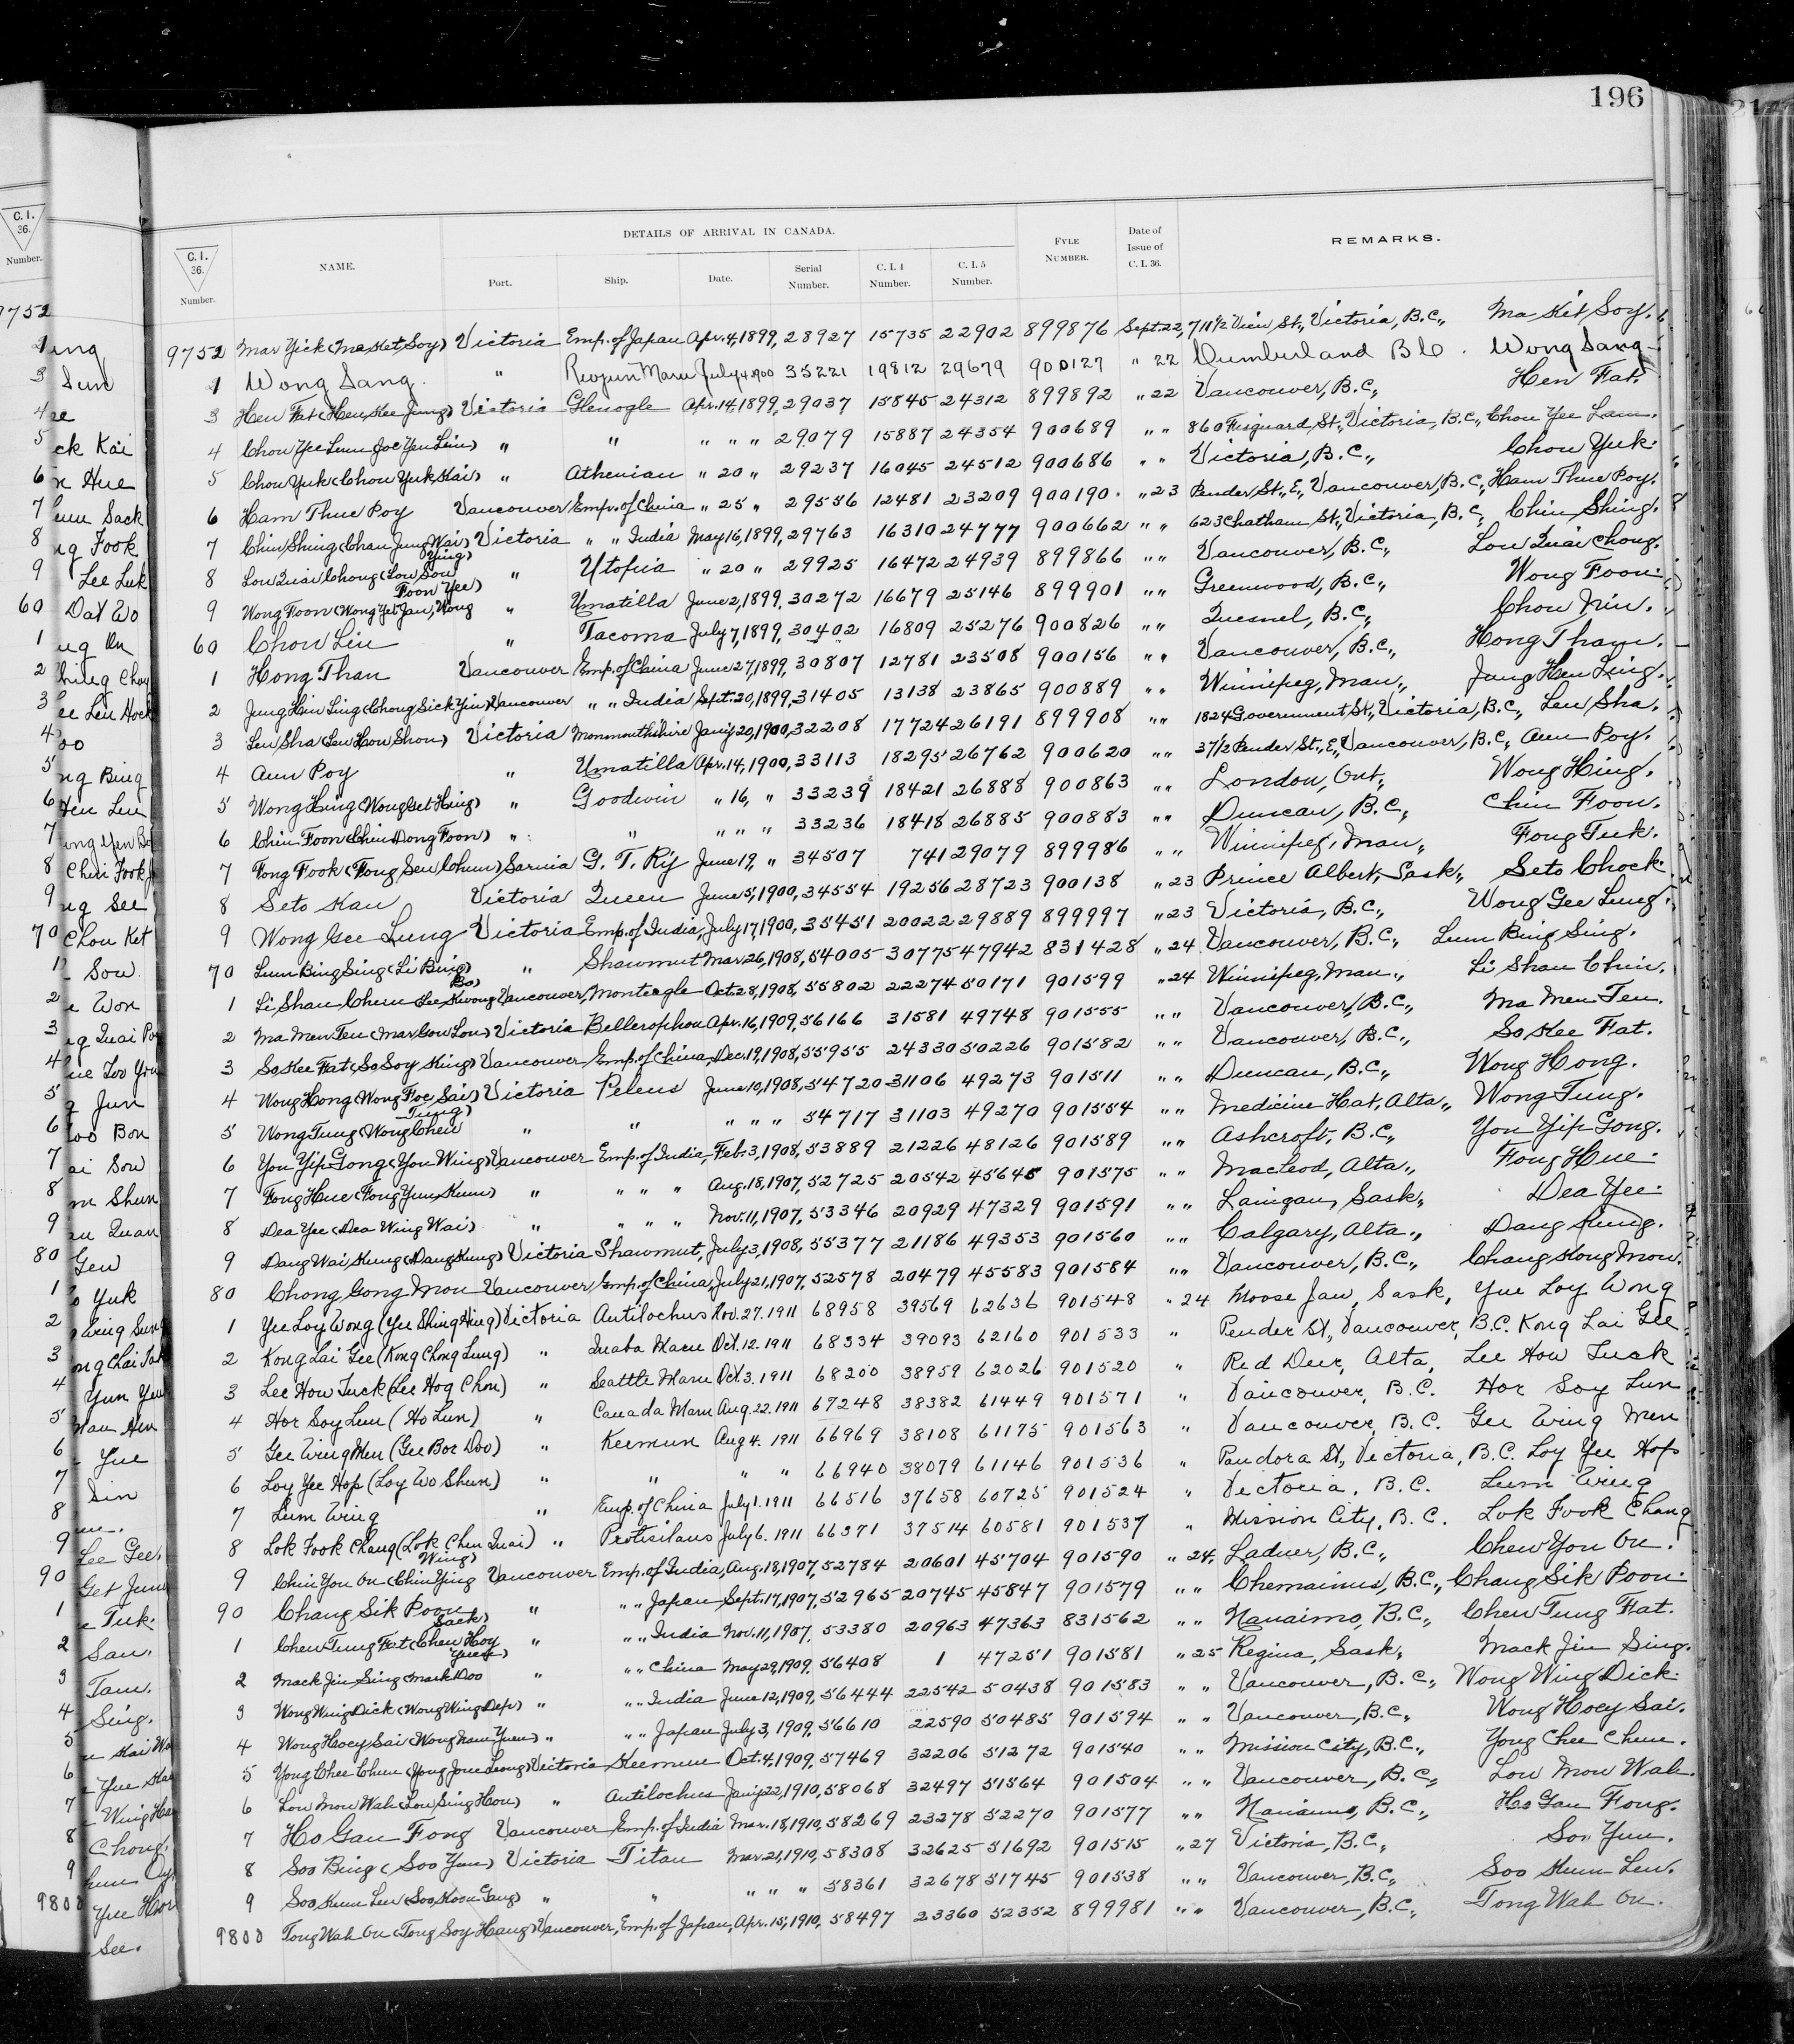 196
C. I. 36. Number.
NAME.
DETAILS OF ARRIVAL IN CANADA.
Port. Ship. Date. Serial Number. C. I. 4 Number. C. I. 5 Number.
FYLE NUMBER.
Date of Issue of C. I. 36.
REMARKS.
9752 Mar Yick (Ma Ket Soy) Victoria Emp. of Japan Apr. 4, 1899, 28927 15735 22902 899876 Sept. 22, 711½ View St., Victoria, B.C., Ma Kit Soy.
1 Wong Sang. " Riojun Maru July 4 1900 35221 19812 29679 900127 " 22 Cumberland B C. Wong Sang
3 Hen Fat (Hen Kee Jung) Victoria Glenogle Apr. 14, 1899, 29037 15845 24312 899892 " 22 Vancouver, B.C., Hen Fat.
4 Chou Yee Lum (Joe Yen Lim) " " " " " 29079 15887 24354 900689 " " 860 Fisguard St., Victoria, B.C., Chou Yee Lam.
5 Chou Yuk (Chou Yuk Kai) " Athenian " 20 " 29237 16045 24512 900686 " " Victoria, B.C., Chou Yuk.
6 Ham Thue Poy Vancouver Emp. of China " 25 " 29556 12481 23209 900190 " 23 Pender St., E., Vancouver, B.C., Ham Thue Poy.
7 Chin Shing (Chan Jung Wai) Victoria " " India May 16, 1899, 29763 16310 24777 900662 " " 623 Chatham St., Victoria, B.C., Chin Shing.
8 Lou Quai Chong (Lou Sou Ying) " Utopia " 20 " 29925 16472 24939 899866 " " Vancouver, B.C., Lou Quai Chong.
9 Wong Foon (Wong Yet Jan, Wong Foon Yee) " Umatilla June 2, 1899, 30272 16679 25146 899901 " " Greenwood, B.C., Wong Foon.
60 Chou Lin " Tacoma July 7, 1899, 30402 16809 25276 900826 " " Quesnel, B.C., Chou Nin.
1 Hong Than Vancouver Emp. of China June 27, 1899, 30807 12781 23508 900156 " " Vancouver, B.C., Hong Tham.
2 Jung Hin Ling (Chong Sick Yin) Vancouver " " India Sept. 20, 1899, 31405 13138 23865 900889 " " Winnipeg, Man., Jung Hen Ling.
3 Leu Sha (Leu Hou Shon) Victoria Monmouthshire Jan'y 20, 1900, 32208 17724 26191 899908 " " 1824 Government St., Victoria, B.C., Leu Sha.
4 Aun Poy " Umatilla Apr. 14, 1900, 33113 18295 26762 900620 " " 37½ Pender St., E., Vancouver, B.C., Aun Poy.
5 Wong Hing (Wong Get Hing) " Goodwin " 16, " 33239 18421 26888 900863 " " London, Ont., Wong Hing.
6 Chin Foon (Chin Dong Foon) " " " " " 33236 18418 26885 900883 " " Duncan, B.C., Chin Foon.
7 Fong Fook (Fong Sen Chun) Sarnia G. T. R'y June 19, " 34507 741 29079 899986 " " Winnipeg, Man., Fong Fuk.
8 Seto Kau Victoria Queen June 5, 1900, 34554 19256 28723 900138 " 23 Prince Albert, Sask., Seto Chock.
9 Wong Gee Lung Victoria Emp. of India, July 17, 1900, 35451 20022 29889 899997 " 23 Victoria, B.C., Wong Gee Lung.
70 Lum Bing Sing (Li Bing) " Shawmut Mar. 26, 1908, 54005 30775 47942 831428 " 24 Vancouver, B.C., Lum Bing Sing.
1 Li Shau Chun (Lee Kwong Bo) Vancouver, Monteagle Oct. 28, 1908, 55802 22274 50171 901599 " 24 Winnipeg, Man., Li Shau Chin.
2 Ma Men Ten (Mar Gow Lou) Victoria Bellerophon Apr. 16, 1909, 56166 31581 49748 901555 " " Vancouver, B.C., Ma Men Ten.
3 So Kee Fat (So Soy King) Vancouver Emp. of China, Dec. 19, 1908, 55955 24330 50226 901582 " " Vancouver, B.C., So Kee Fat.
4 Wong Hong (Wong Foc Sai) Victoria Peleus June 10, 1908, 54720 31106 49273 901511 " " Duncan, B.C., Wong Hong.
5 Wong Tung (Wong Chew Tung) " " " " " 54717 31103 49270 901554 " " Medicine Hat, Alta., Wong Tung.
6 You Yip Gong (You Wing) Vancouver Emp. of India, Feb. 3, 1908, 53889 21226 48126 901589 " " Ashcroft, B.C., You Yip Gong.
7 Fong Hue (Fong Yun Kum) " " " " Aug. 18, 1907, 52725 20542 45645 901575 " " Macleod, Alta., Fong Hue.
8 Dea Yee (Dea Wing Wai) " " " " Nov. 11, 1907, 53346 20929 47329 901591 " " Lanigan, Sask., Dea Yee.
9 Dang Wai Kung (Dang Kung) Victoria Shawmut, July 3, 1908, 55377 21186 49353 901560 " " Calgary, Alta., Dang Kung.
80 Chong Gong Mou Vancouver Emp. of China, July 21, 1907, 52578 20479 45583 901584 " " Vancouver, B.C., Chang Kong Mow.
1 Yee Loy Wong (Yee Shing Hing) Victoria Antilochus Nov. 27. 1911 68958 39569 62636 901548 " 24 Moose Jaw, Sask, Yue Loy Wong
2 Kong Lai Gee (Kong Chong Lung) " Inaba Maru Oct. 12. 1911 68334 39093 62160 901533 " Pender St., Vancouver, B.C. Kong Lai Gee
3 Lee How Tuck (Lee Hog Chou) " Seattle Maru Oct. 3. 1911 68200 38959 62026 901520 " Red Deer, Alta, Lee How Tuck
4 Hor Soy Lun (Ho Lun) " Canada Maru Aug. 22. 1911 67248 38382 61449 901571 " Vancouver, B.C. Hor Soy Lun
5 Gee Wing Men (Gee Boc Doo) " Keemun Aug 4. 1911 66969 38108 61175 901563 " Vancouver, B.C. Gee Wing Men
6 Loy Yee Hop (Loy Wo Shun) " " " " 66940 38079 61146 901536 " Pandora St., Victoria, B.C. Loy Yee Hop
7 Lum Wing " Emp. of China July 1. 1911 66516 37658 60725 901524 " Victoria, B.C. Lum Wing
8 Lok Fook Chang (Lok Chen Quai) " Protesilaus July 6. 1911 66371 37514 60581 901537 " Mission City, B.C. Lok Fook Chang
9 Chin You On (Chin Ying Wing) Vancouver Emp. of India, Aug. 18, 1907, 52784 20601 45704 901590 " 24, Ladner, B.C., Chew You On.
90 Chang Sik Poon " " " Japan Sept. 17, 1907, 52965 20745 45847 901579 " " Chemainus, B.C., Chang Sik Poon.
1 Chew Tung Fat (Chew Hoy Sack) " " " India Nov. 11, 1907, 53380 20963 47363 831562 " " Nanaimo, B.C., Chew Tung Fat.
2 Mack Jin Sing (Mark Doo Yuen) " " " China May 29, 1909, 56408 1 47251 901581 " 25 Regina, Sask., Mack Jin Sing.
3 Wong Wing Dick (Wong Wing Dep) " " " India June 12, 1909, 56444 22542 50438 901583 " " Vancouver, B.C., Wong Wing Dick.
4 Wong Hoey Sai (Wong Nam Yuen) " " " Japan July 3, 1909, 56610 22590 50485 901594 " " Vancouver, B.C., Wong Hoey Sai.
5 Yong Chee Chun (Yong Jone Leong) Victoria Keemun Oct. 4, 1909, 57469 32206 51272 901540 " " Mission City, B.C., Yong Chee Chun.
6 Lou Mow Wah (Lou Sing Hou) " Antilochus Jan'y 22, 1910, 58068 32497 51564 901504 " " Vancouver, B.C., Lou Mou Wah.
7 Ho Gan Fong Vancouver Emp. of India Mar. 18, 1910, 58269 23278 52270 901577 " " Nanaimo, B.C., Ho Gan Fong.
8 Soo Bing (Soo Yun) Victoria Titan Mar. 21, 1910, 58308 32625 51692 901515 " 27 Victoria, B.C., Soo Yun.
9 Soo Kum Len (Soo Koon Gang) " " " " " 58361 32678 51745 901538 " " Vancouver, B.C., Soo Kum Len.
9800 Tong Wah On (Tong Soy Hang) Vancouver, Emp. of Japan, Apr. 15, 1910, 58497 23360 52352 899981 " " Vancouver, B.C., Tong Wah On.